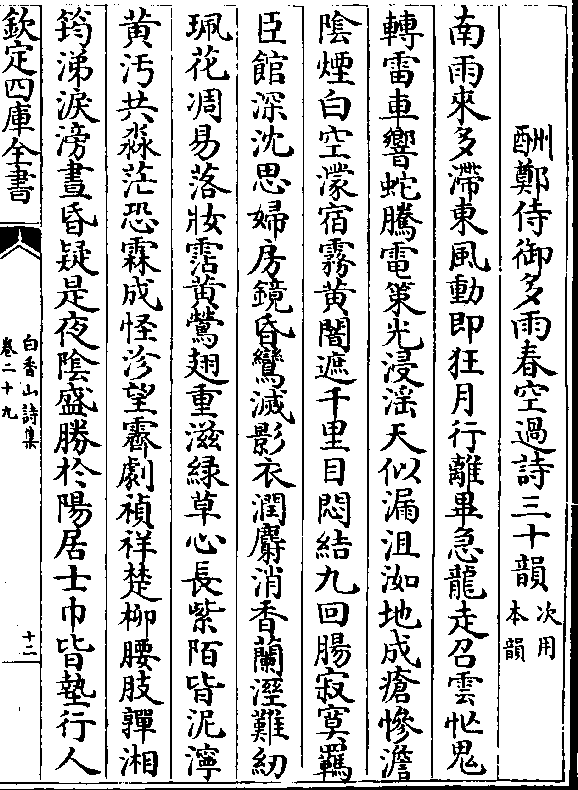 酬鄭侍御多雨春空過詩三十韻次用本韻
南雨來多滯東風動即狂月行離畢急龍走召雲忙鬼
轉雷車響蛇騰電策光浸淫天似漏沮洳地成瘡慘澹
陰煙白空濛宿霧黃闇遮千里目悶結九回腸寂寞羈
臣館深沈思婦房鏡昏鸞滅影衣潤麝消香蘭溼難紉
珮花凋易落妝霑黃鶯翅重滋緑草心長紫陌皆泥濘
黃汚共淼茫恐霖成怪沴望霽劇禎祥楚柳腰肢嚲湘
筠涕淚滂晝昏疑是夜陰盛勝於陽居士巾皆墊行人
欽定四庫全書
白香山詩集
卷二十九
十二